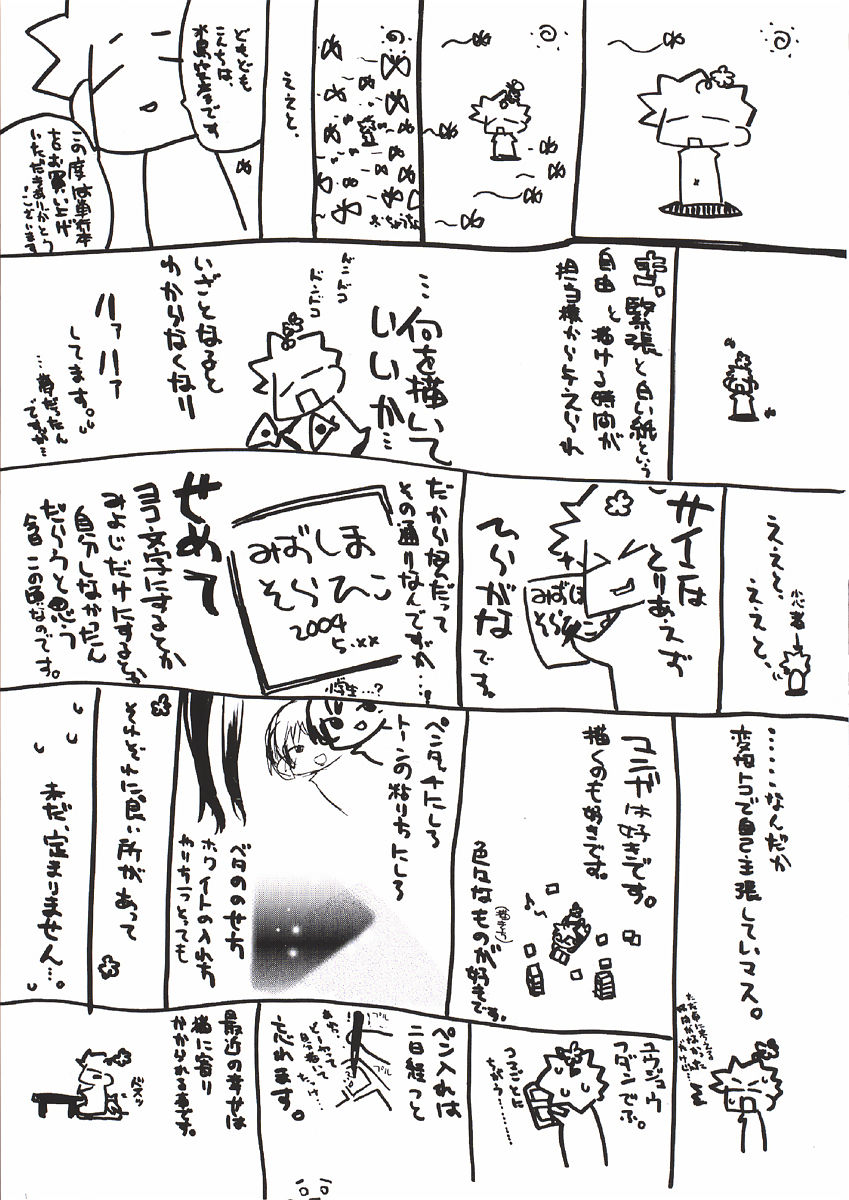 おちょうちょ
ええと、
どもども
こんちは、
です。
この度は単行本
をお買い上げ
いただきありがとう
ございます
緊張と白い紙という
自由と描ける時間が
担当様から与えられ
…何を描いて
いいか…
ドンドコ
ドンドコ
いざとなると
わからなくなり
ハァハァ
してます。
ええと、
ええと、
小心者→
サインは
とりあえず
ひらがな
です。
みずしま
そらひこ
だから何だって
その通りなんですが…。
みずしま
そらひこ
2004
5.××
小学生…?
せめて
ヨコ文字にするとか
みょじだけにするとか
自分しなかったん
だろうと思う
今日この頃なのです。
……なんだか
変なトコで自己主張していマス。
マンガは好きです。
描くのも好きです。
色々なものが好きです。
ペンタッチにしろ
トーンの貼り方にしろ
ベタのせ方
ホワイトの入れ方
やり方一つとっても
それぞれに良い所があって
未だ、定まりません…。
ユウジュウ
フダンでぶ。
つめごとに
ちがう………
ペン入れは
二日経つと
忘れます。
プル
プル
最近の幸せは
猫に寄り
かかられる事です。